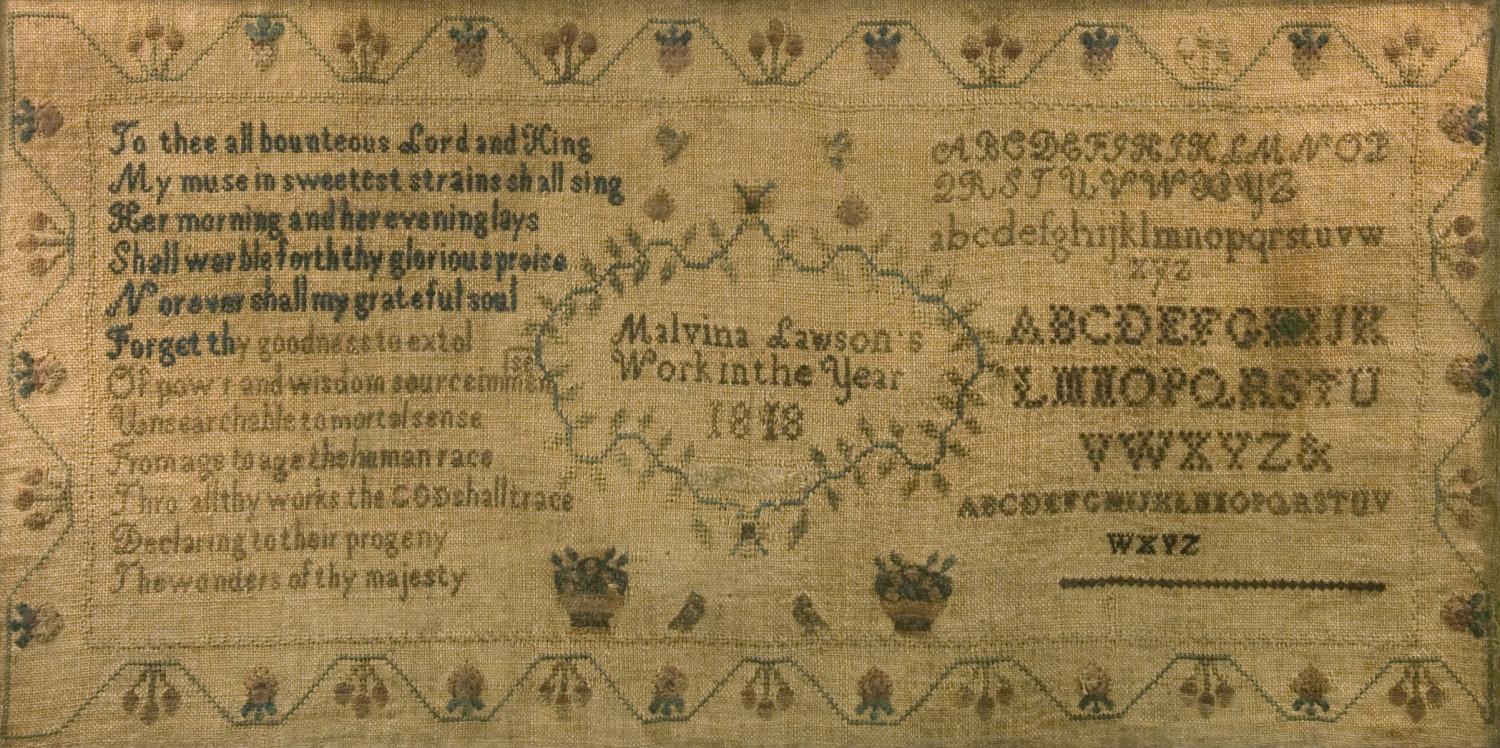 To thee all bounteous Lord and King
My muse in sweetest strains shall sing
Her morning and her evening lays
Shall warble forth thy glorious praise
Nor ever shall my grateful soul
Forget thy goodness to extol
Of pow'r and wisdom source immen
[se
Unsearchable to mortal sense
From age to age the human race
Thro all thy works the GOD shall trace
Declaring to their progeny
The wonders of thy majesty
Malvina Lawson's
Work in the Year
1818
ABCDEFGHIKLMNOP
QRSTUVWXYZ
abcdefghijklmnopqrstuvw
xyz
ABCDEFGHIJK
LMNOPQRSTU
VWXYZ&
ABCDEFGHIJKLMNOPQRSTUV
WXYZ